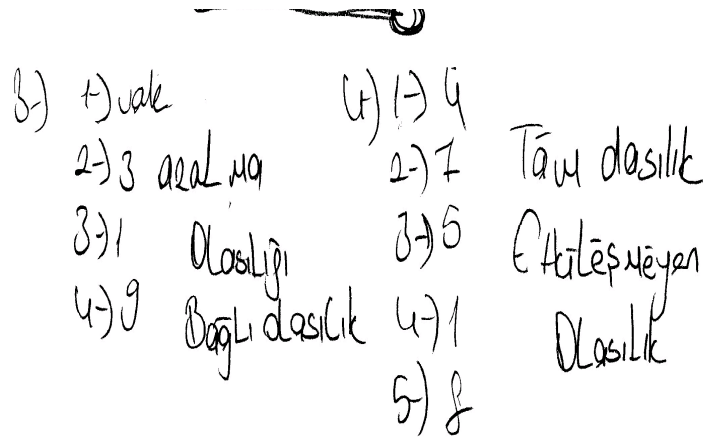 3-) 1-) vak
2-) 3 azalma
3-) 1 Olasılığı
4-) 9 Bağlı olasılık
4-) 1-) 4
2-) 7
3-) 5
4-) 1
5-) 8
Tam olasılık
Etkileşmeyen
Olasılık